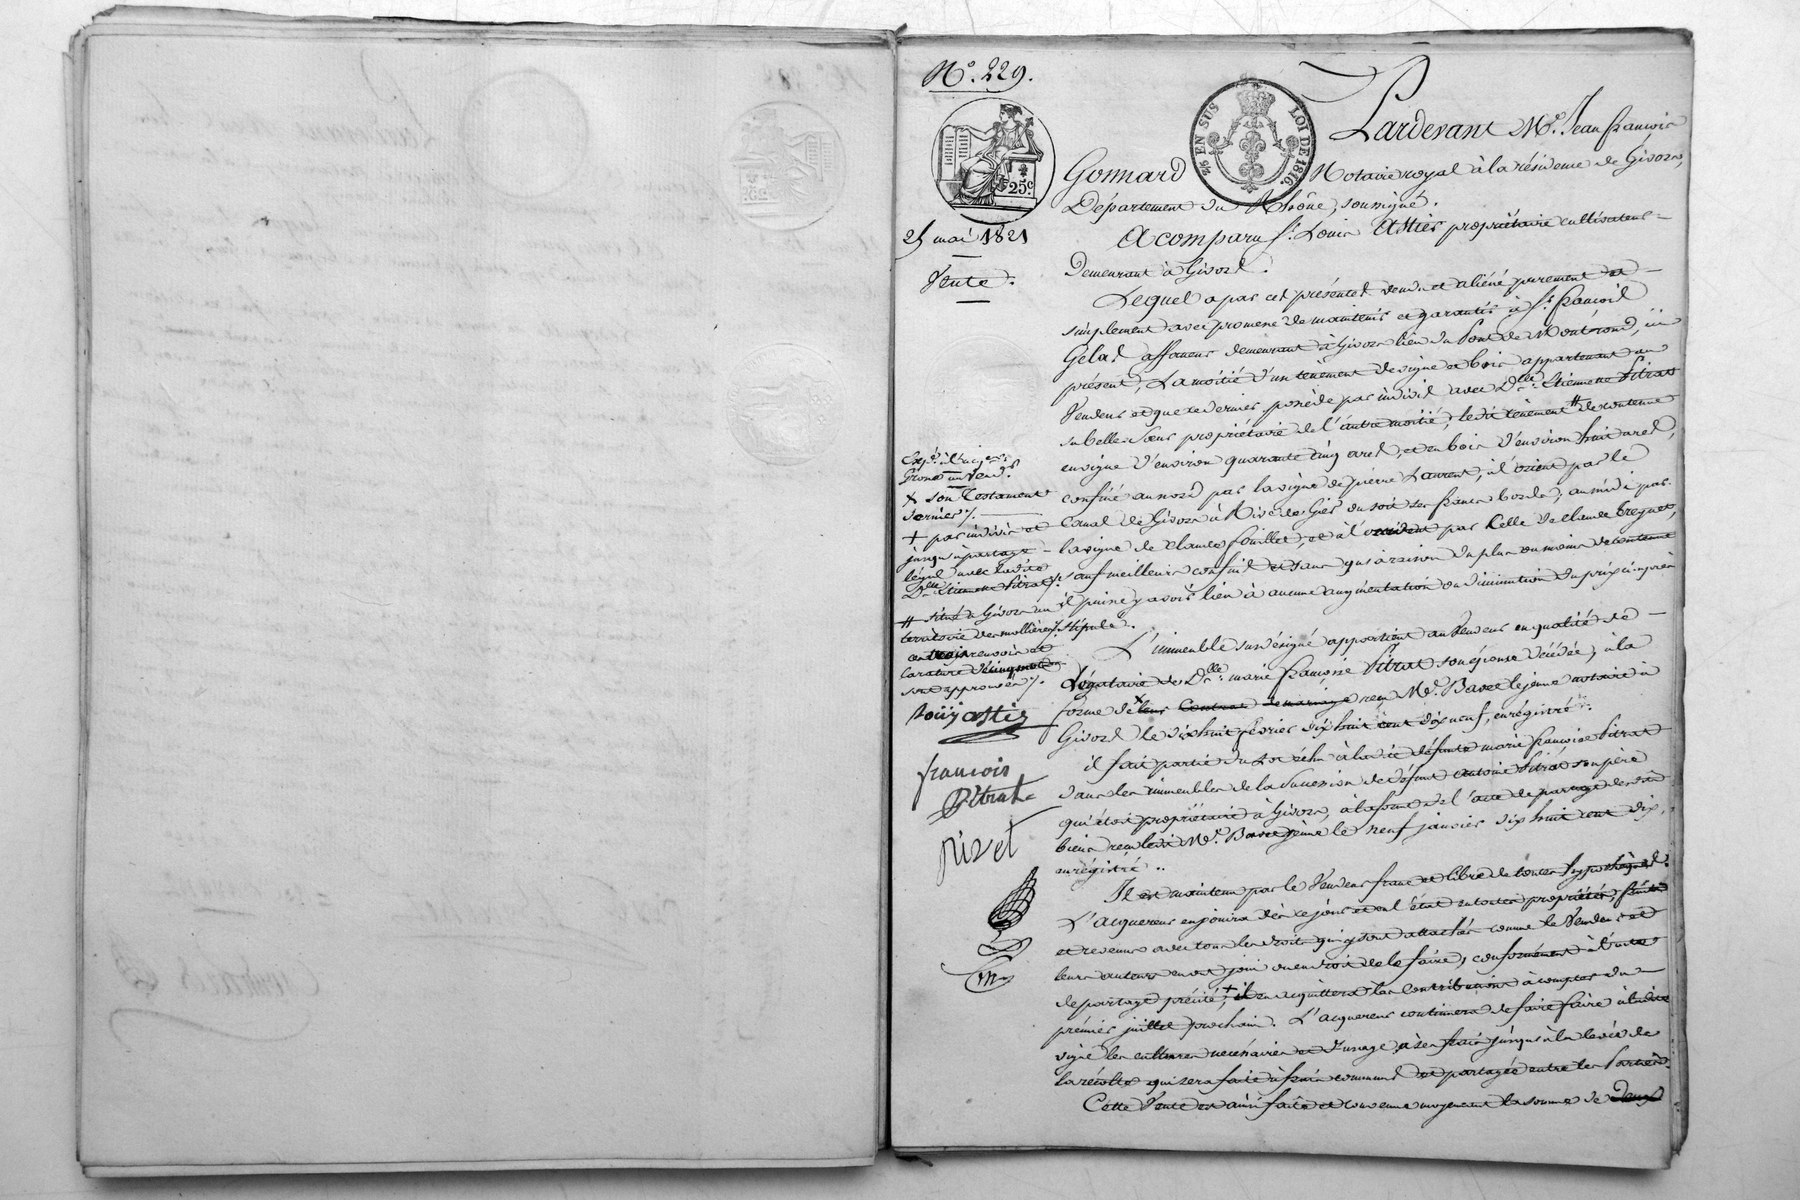 N.° 229.
25 c.
2/6 EN SUS LOI DE 1816.
25 mai 1821
Vente.
Pardevant M.e Jean françois
Gonnard Notaire royal à la résidence de Givors,
Département du Rhône, soussigné.
A comparu s.r Louis Astier propriétaire cultivateur
Demeurant à Givors.
Lequel a par ces présentes vendu et aliéné purement et
simplement avec promesse de maintenir et garantir à s.r françois
Gelas affaneur demeurant à Givors lieu du Pont de Montrond, ici
présent, La moitié d'un tènement de vigne et bois appartenant au
Vendeur et que ce dernier possède par indivis avec D.lle Etiennette Pitrat
sa belle-sœur propriétaire de l'autre moitié; ledit tènement # de contenue
en vigne d'environ quarante cinq ares, et en bois d'environ huit ares,
confiné au nord par la vigne de pierre Laurent, à l'orient par le
Canal de Givors à Rive de Gier ou soit ses francs bords; au midi par
la vigne de Claude fouillet; et à l'occident par Celle de Claude
sauf meilleurs confins et sans qu'à raison du plus ou moins de contenue
il puisse y avoir lieu à aucune augmentation ou diminution du prix ci-après
stipulé.
L'immeuble sus désigné appartient au Vendeur en qualité de
Légataire de D.lle marie françoise Pitrat son épouse décédée, à la
forme de x leur Contrat de mariage reçu M.e Basse le jeune notaire à
Givors le dix huit février dix huit cent dix neuf, enrégistré.
il fait partie du Lot échu à ladite défunte marie françoise Pitrat
dans les immeubles de la Succession de défunt antoine Pitrat son père
qui étoit propriétaire à Givors, à la forme de l'acte de partage desdits
biens reçu ledit M.e Basse jeune le neuf janvier dix huit cent dix,
enrégistré.
Il est maintenu par le Vendeur franc et libre de toutes hypothèques.
L'acquereur en jouira dès ce jour et en l'état en toutes propriétés, fruits
et revenus avec tous les droits qui y sont attachés comme le Vendeur et
leurs auteurs en ont joui ou en droit de le faire, conformément à l'acte
de partage précité, + il en acquittera les contributions à compter du
prémier juillet prochain. L'acquereur continuera de faire faire à ladite
vigne les cultures nécessaires et d'usage, à ses frais jusqu'à la levée de
la récolte qui sera faite à frais communs et partagée entre les Parties.
Cette Vente est ainsi faite et convenue moyenant la somme de Deux
Exp.é
x son Testament
dernier /.
+ par indivis et
jusqu'à partage
légal avec ladite
D.lle Etiennette Pitrat /.
# situé à Givors au
territoire des mollières /.
renvois et
la rature de cinq mots
sont approuvés /.
louis astier
francois
Pitrat
pizet